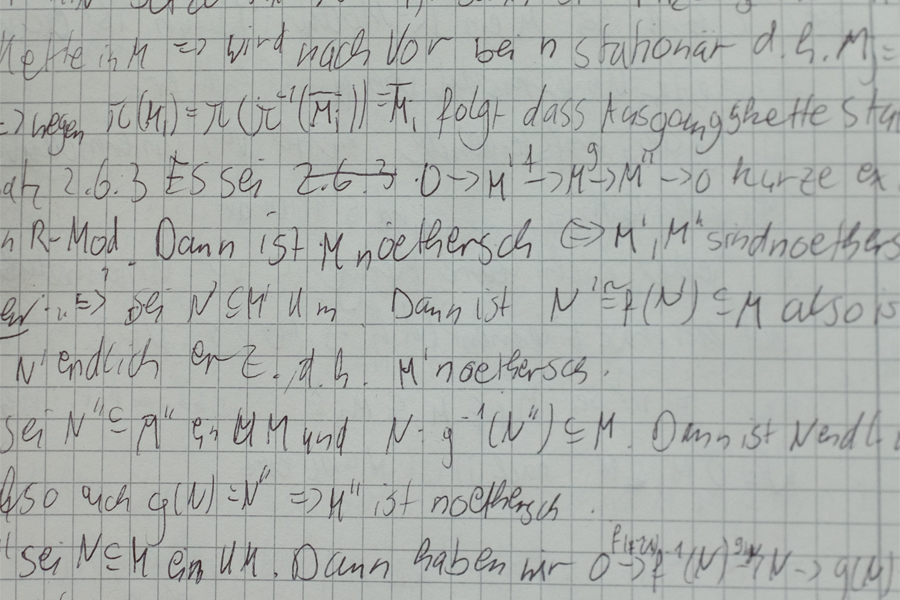 Kette in M => wird nach Vor bei n stationär d.h. M_j =
=> wegen π(M_i) = π(π^{-1}(\overline{M_i})) = \overline{M_i} folgt dass Ausgangskette Sta
atz 2.6.3 Es sei 0 -> M' -f-> M -g-> M'' -> 0 kurze ex.
n R-Mod. Dann ist M noethersch <=> M', M'' sind noethers
ew: "=>" Sei N' ⊆ M' UM. Dann ist N' ≅ f(N') ⊆ M also is
N' endlich erz., d.h. M' noethersch.
Sei N'' ⊆ M'' ein UM und N = g^{-1}(N'') ⊆ M. Dann ist N endl
Also auch g(N) = N'' => M'' ist noethersch.
sei N ⊆ M ein UM. Dann haben wir 0 -> f^{-1}(N) -> N -> g(N)